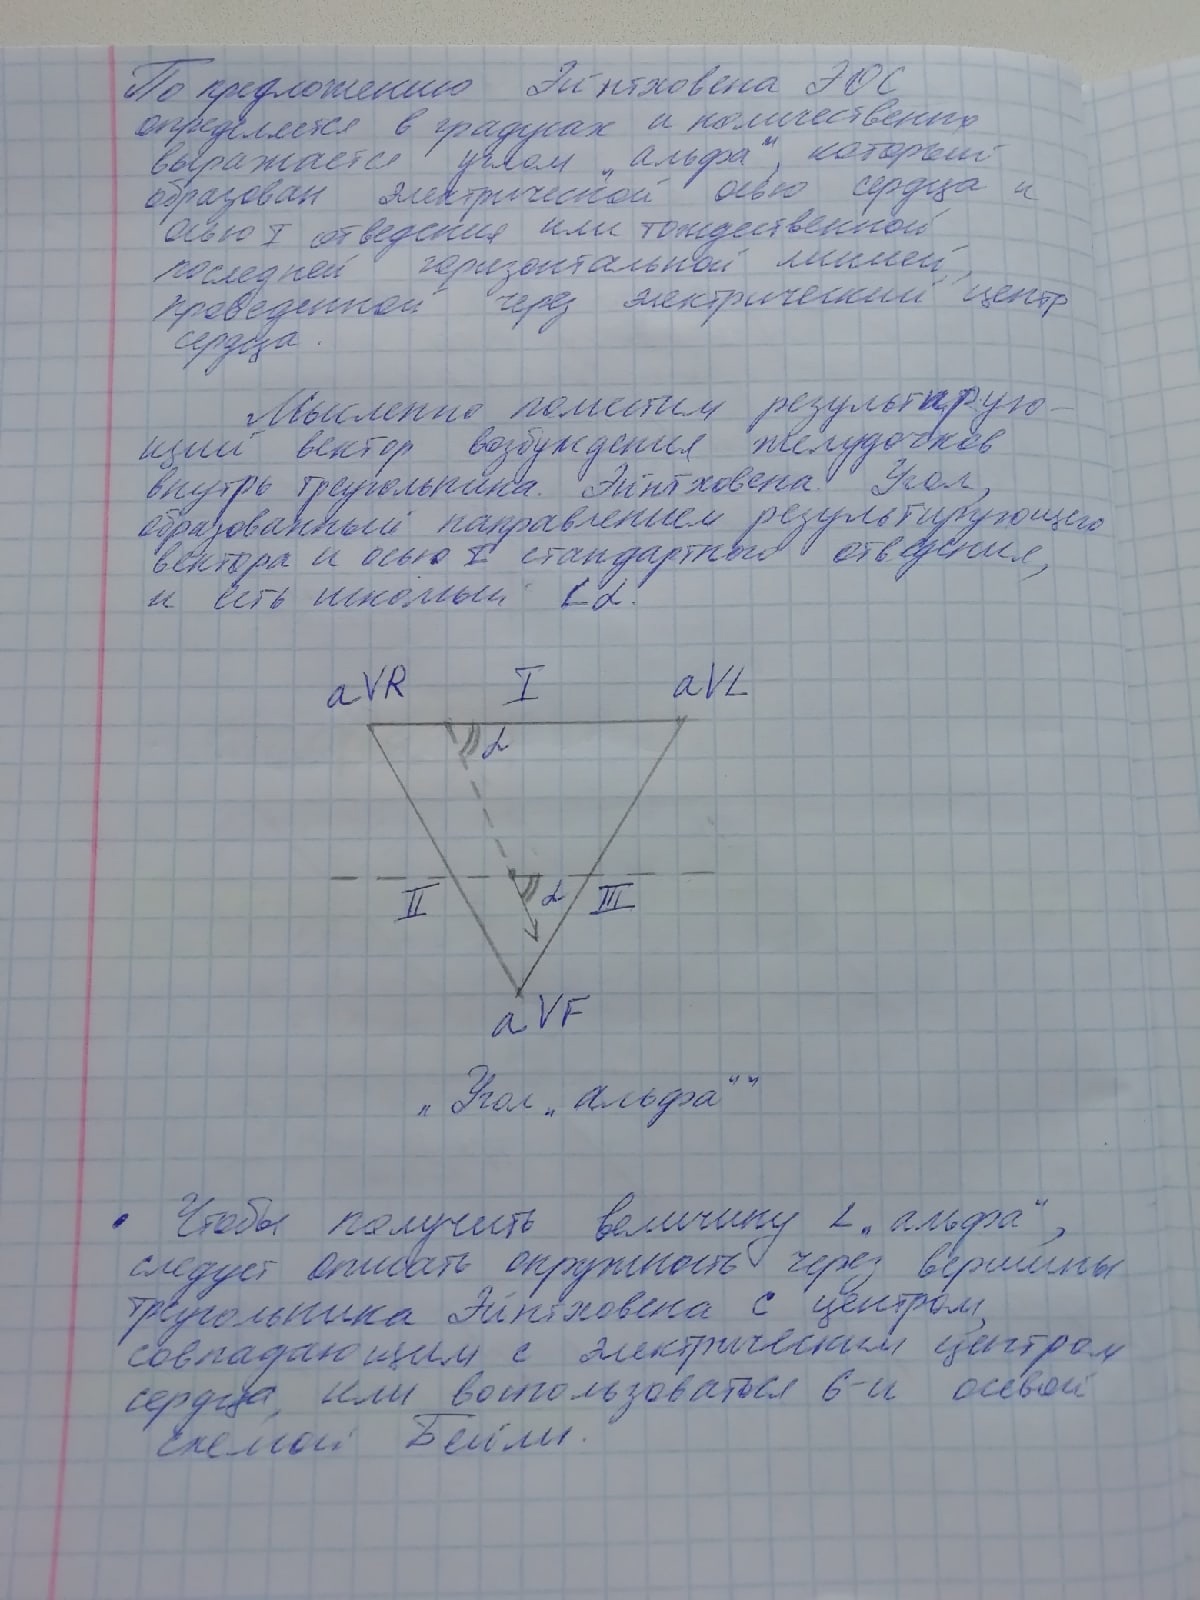 По предложению Эйнтховена ЭОС
определяется в градусах и количественно
выражается углом „альфа“, который
образован электрической осью сердца и
осью I отведения или тождественной
последней горизонтальной линией,
проведенной через электрический центр
сердца.
Мысленно поместим результирую-
щий вектор возбуждения желудочков
внутрь треугольника Эйнтховена. Угол,
образованный направлением результирующего
вектора и осью I стандартного отведения,
и есть искомый ∠α.
aVR I aVL
α
II α III
aVF
„Угол „альфа““
• Чтобы получить величину ∠ „альфа“,
следует описать окружность через вершины
треугольника Эйнтховена с центром,
совпадающим с электрическим центром
сердца, или воспользоваться 6-и осевой
схемой Бейли.